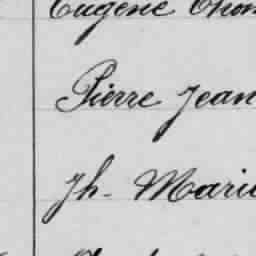 Eugène
Pierre Jean
Jh. Marie